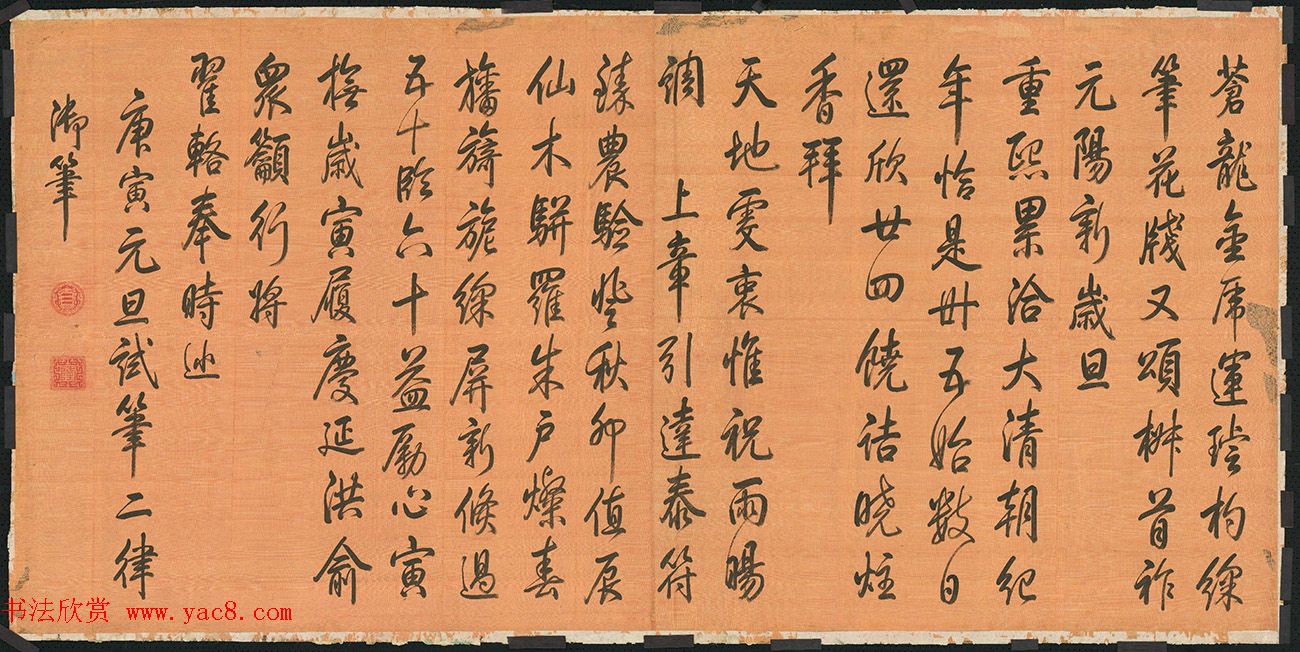 蒼龍金虎運璿杓綵
筆花牋又頌椒首祚
元陽新歲旦
重熙累洽大清朝紀
年恰是卅五始數日
還欣廿四饒詰曉炷
香拜
天地虔衷惟祝雨暘
調 上章引達泰符
臻農驗登秋卯值辰
仙木駢羅朱戶燦春
旛旖旎綵屏新倏過
五十臨六十益勵心寅
撫歲寅履慶延洪俞
衆籲行將
翟輅奉時巡
庚寅元旦試筆二律
御筆
书法欣赏 www.yac8.com